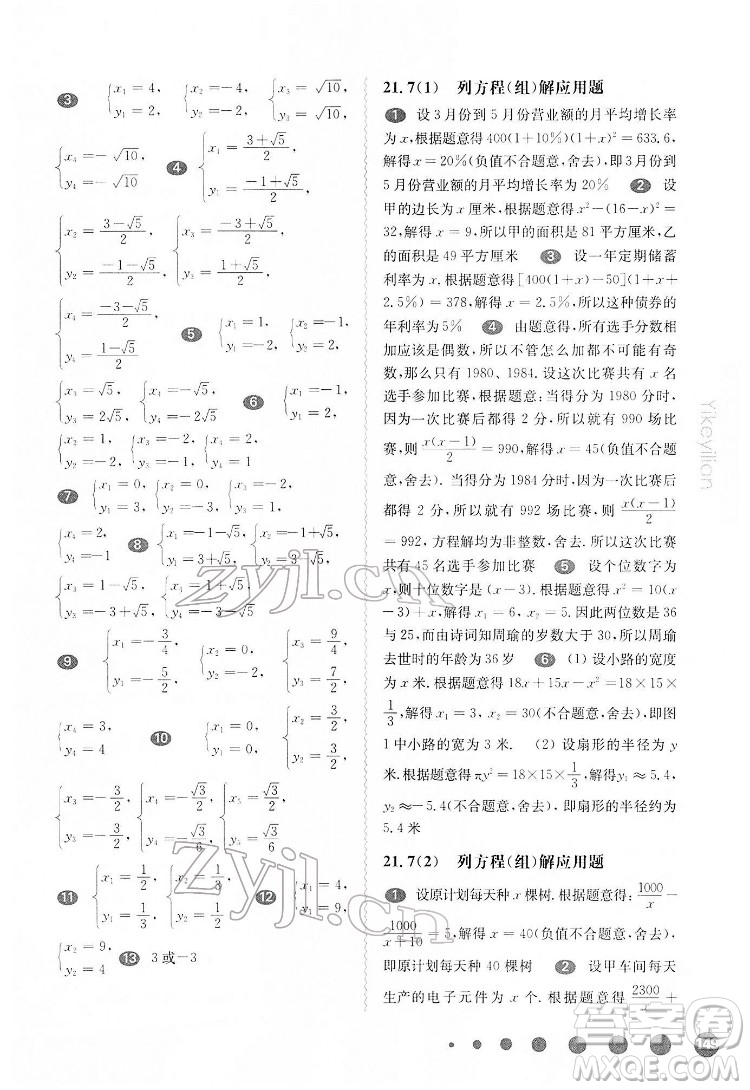 ③ {x₁=4, y₁=2, {x₂=-4, y₂=-2, {x₃=√10, y₃=√10,
{x₄=-√10, y₄=-√10 ④ {x₁=(3+√5)/2, y₁=(-1+√5)/2,
{x₂=(3-√5)/2, y₂=(-1-√5)/2, {x₃=(-3+√5)/2, y₃=(1+√5)/2,
{x₄=(-3-√5)/2, y₄=(1-√5)/2 ⑤ {x₁=1, y₁=-2, {x₂=-1, y₂=2,
{x₃=√5, y₃=2√5, {x₄=-√5, y₄=-2√5 ⑥ {x₁=1, y₁=2,
{x₂=1, y₂=3, {x₃=-2, y₃=-1, {x₄=-2, y₄=2
⑦ {x₁=0, y₁=1, {x₂=0, y₂=-3, {x₃=1, y₃=0,
{x₄=2, y₄=-1 ⑧ {x₁=-1-√5, y₁=3+√5, {x₂=-1+√5, y₂=3-√5,
{x₃=1-√5, y₃=-3-√5, {x₄=1+√5, y₄=-3+√5
⑨ {x₁=-3/4, y₁=-5/2, {x₂=0, y₂=-1, {x₃=9/4, y₃=7/2,
{x₄=3, y₄=4 ⑩ {x₁=0, y₁=0, {x₂=3/2, y₂=3/2,
{x₃=-3/2, y₃=-3/2, {x₄=√3/2, y₄=-√3/6, {x₅=-√3/2, y₅=√3/6
⑪ {x₁=1/2, y₁=1/3, {x₂=1/3, y₂=1/2 ⑫ {x₁=4, y₁=9,
{x₂=9, y₂=4 ⑬ 3或-3
21.7(1) 列方程(组)解应用题
① 设3月份到5月份营业额的月平均增长率
为x,根据题意得400(1+10%)(1+x)²=633.6,
解得x=20%(负值不合题意,舍去),即3月份到
5月份营业额的月平均增长率为20% ② 设
甲的边长为x厘米,根据题意得x²-(16-x)²=
32,解得x=9,所以甲的面积是81平方厘米,乙
的面积是49平方厘米 ③ 设一年定期储蓄
利率为x.根据题意得[400(1+x)-50](1+x+
2.5%)=378,解得x=2.5%,所以这种债券的
年利率为5% ④ 由题意得,所有选手分数相
相加应该是偶数,所以不管怎么加都不可能有奇
数,那么只有1980、1984.设这次比赛共有x名
选手参加比赛,根据题意:当得分为1980分时,
因为一次比赛后都得2分,所以就有990场比
赛,则x(x-1)/2=990,解得x=45(负值不合题
意,舍去).当得分为1984分时,一次比赛后都
得2分,所以就有992场比赛,则x(x-1)/2
=992,方程解均为非整数,舍去.所以这次比赛
共有45名选手参加比赛 ⑤ 设个位数字是
x,十位数字为(x-3).根据题意得x²=10(x
-3)+x,解得x₁=5,x₂=6.因此两位数是36
与25,而由诗词知周瑜的岁数大于30,所以周瑜
去世时的年龄为36岁 ⑥ (1)设小路的宽度
为x米.根据题意得18x+15x-x²=18×15×
1/3,解得x₁=3,x₂=30(不合题意,舍去),即图
1中小路的宽为3米. (2)设扇形的半径为y
米.根据题意得πy²=18×15×1/3,解得y₁≈5.4,
y₂≈-5.4(不合题意,舍去),即扇形的半径约为
5.4米
21.7(2) 列方程(组)解应用题
① 设原计划每天种x棵树.根据题意得:1000/x-
1000/(x+10)=5,解得x=40(负值不合题意,舍去),
即原计划每天种40棵树 ② 设甲车间每天
生产的电子元件为x个.根据题意得2300/x+
Yikeyilian
zyjl.cn
zyjl.cn
答案圈
MXQE.COM
149